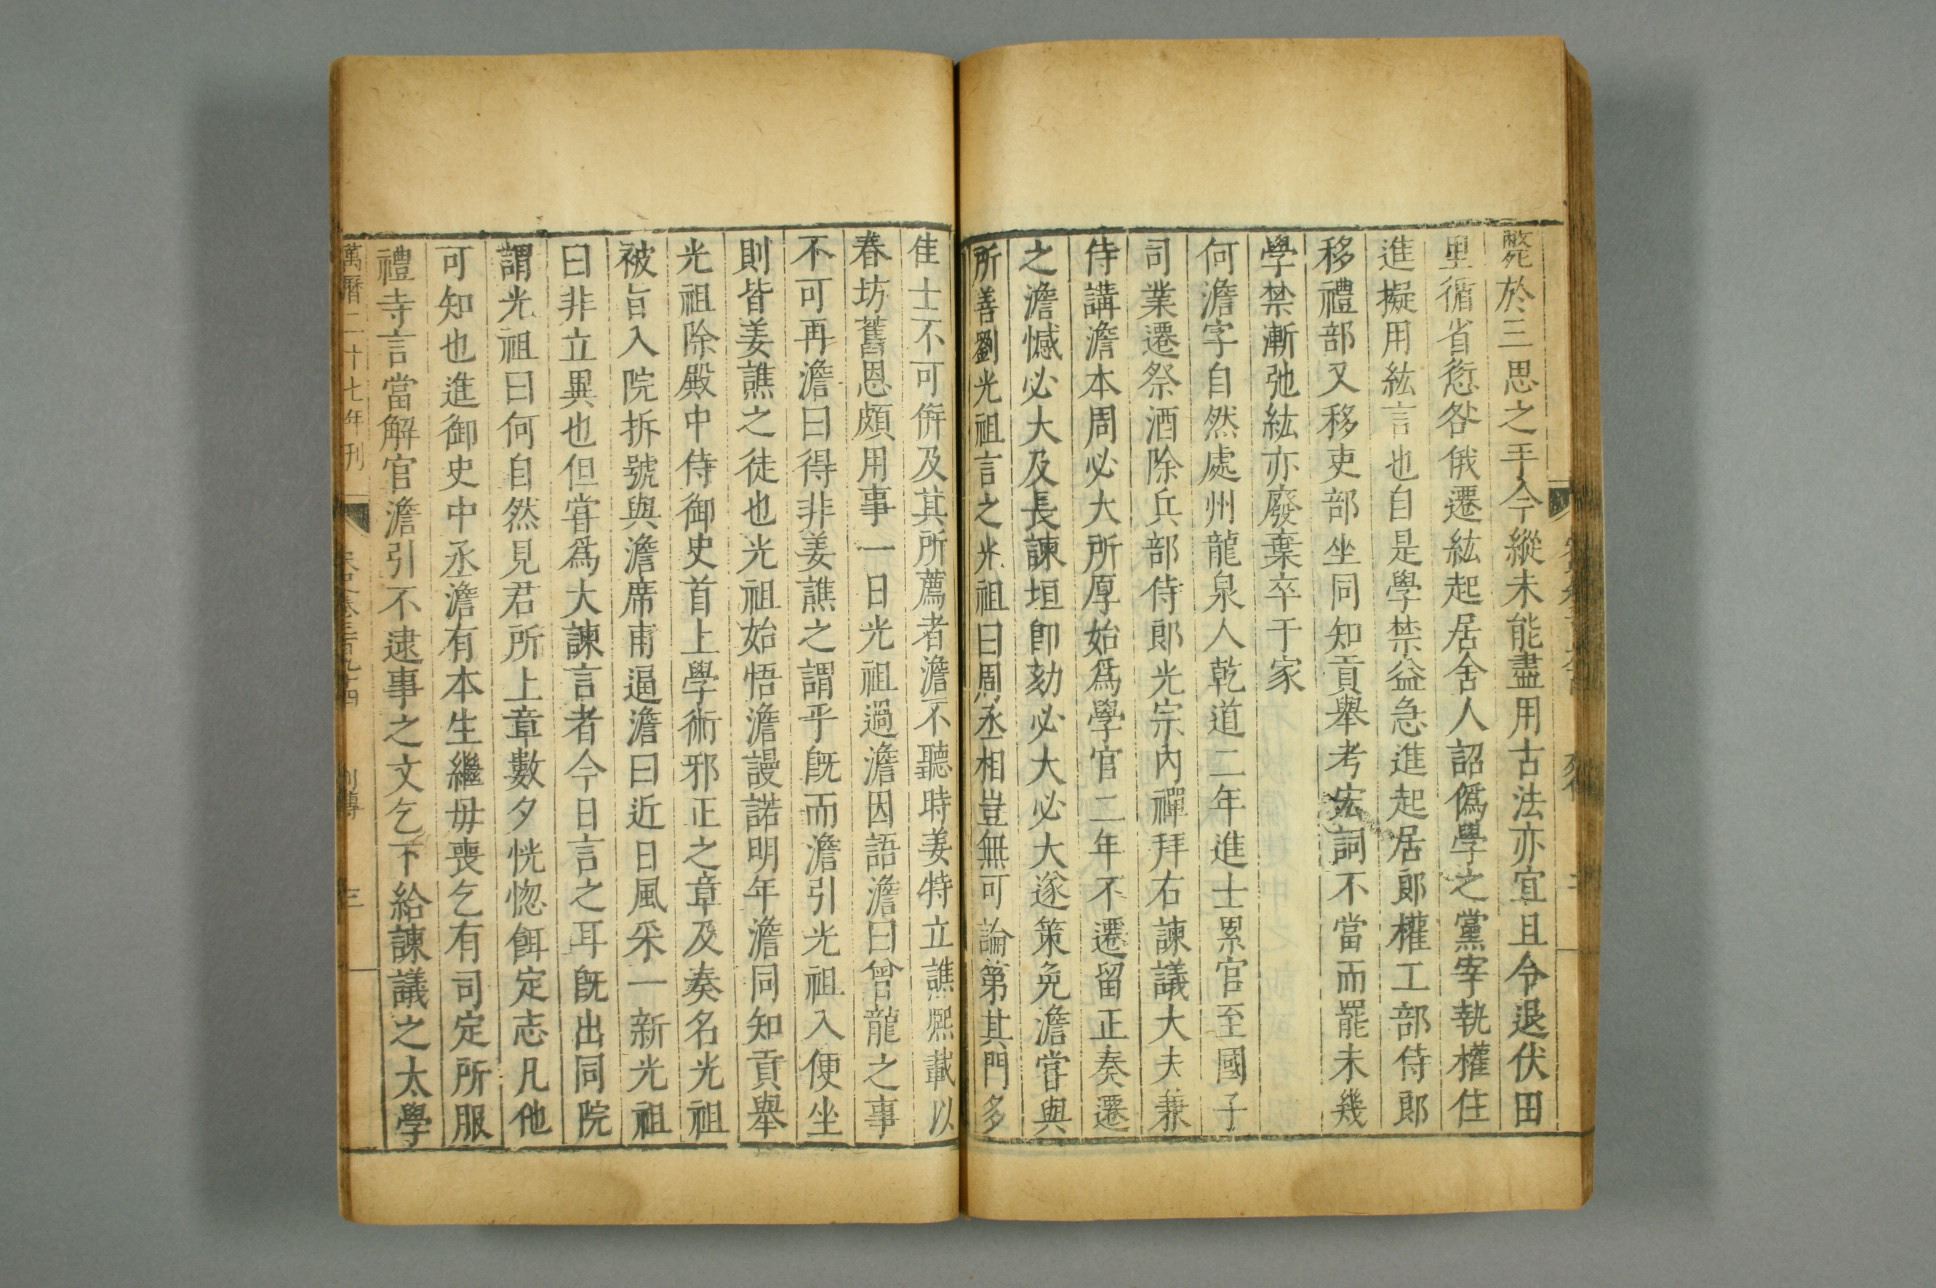 斃於三思之手今縱未能盡用古法亦宜且令退伏田
里循省愆咎俄遷紘起居舍人詔僞學之黨宰執權住
進擬用紘言也自是學禁益急進起居郎權工部侍郎
移禮部又移吏部坐同知貢舉考宏詞不當而罷未幾
學禁漸弛紘亦廢棄卒于家
何澹字自然處州龍泉人乾道二年進士累官至國子
司業遷祭酒除兵部侍郎光宗內禪拜右諫議大夫兼
侍講澹本周必大所厚始爲學官二年不遷留正奏遷
之澹憾必大及長諫垣卽劾必大必大遂策免澹嘗與
所善劉光祖言之光祖曰周丞相豈無可論第其門多
佳士不可倂及其所薦者澹不聽時姜特立譙熙載以
春坊舊恩頗用事一日光祖過澹因語澹曰曾龍之事
不可再澹曰得非姜譙之謂乎旣而澹引光祖入便坐
則皆姜譙之徒也光祖始悟澹謾諾明年澹同知貢舉
光祖除殿中侍御史首上學術邪正之章及奏名光祖
被旨入院拆號與澹席甫逼澹曰近日風采一新光祖
曰非立異也但嘗爲大諫言者今日言之耳旣出同院
謂光祖曰何自然見君所上章數夕恍惚餌定志凡他
可知也進御史中丞澹有本生繼毋喪乞有司定所服
禮寺言當解官澹引不逮事之文乞下給諫議之太學
萬曆二十七年刊 宋史卷三百九十四 列傳 三